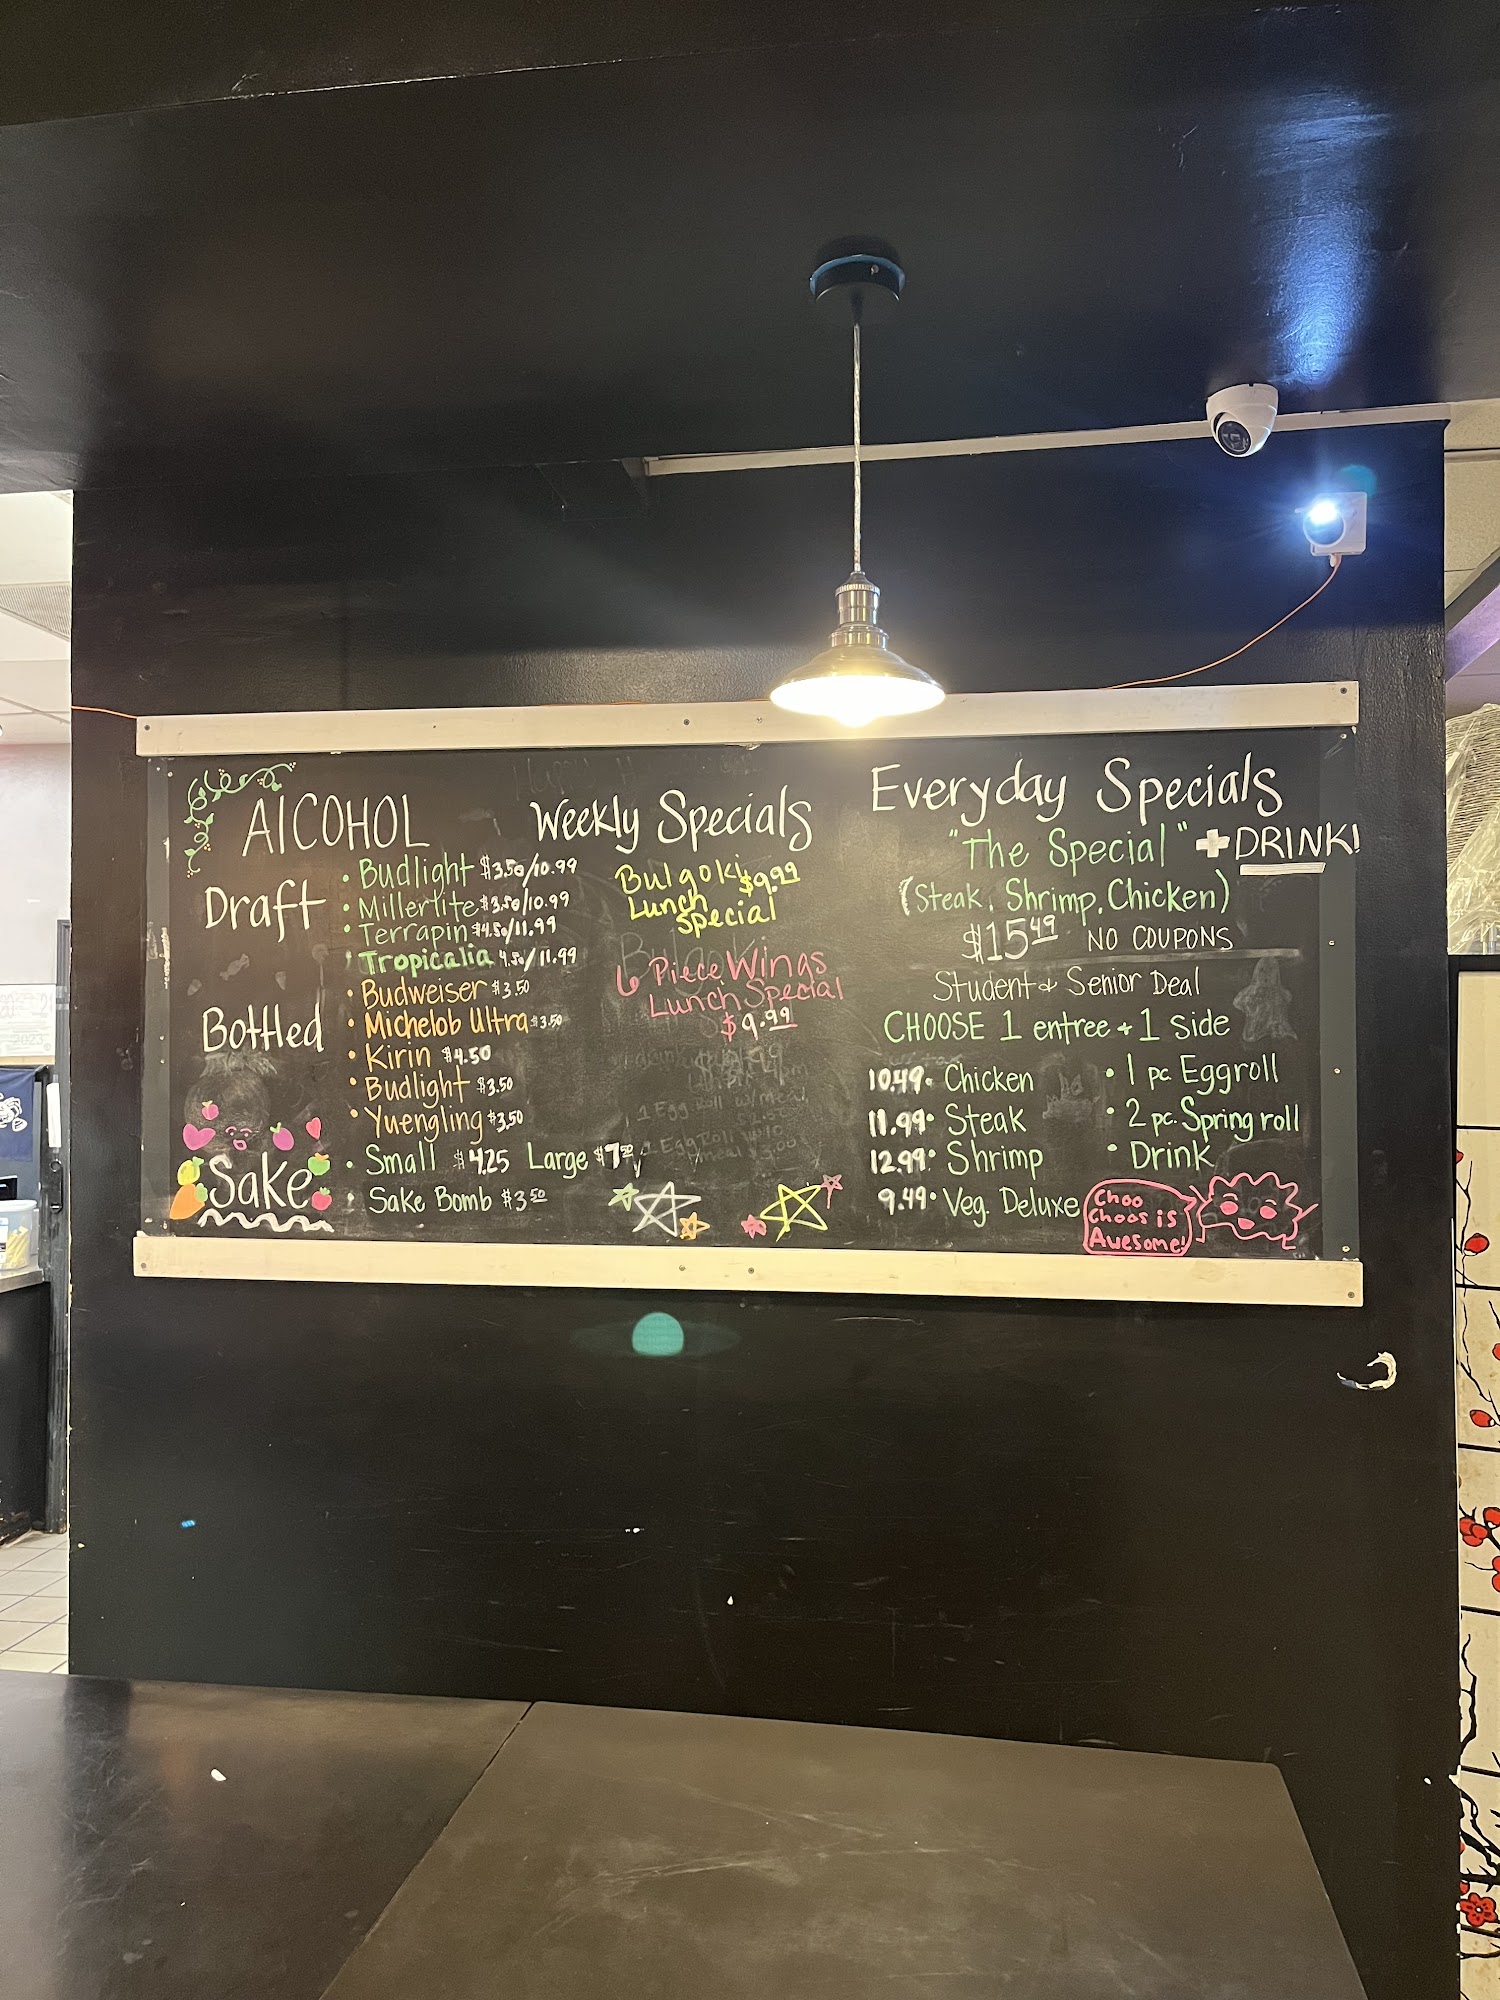 AlCOHOL
Draft
• Budlight $3.50/10.99
• Millerlite $3.50/10.99
• Terrapin $4.50/11.99
• Tropicalia 4.50/11.99
Bottled
• Budweiser $3.50
• Michelob Ultra $3.50
• Kirin $4.50
• Budlight $3.50
• Yuengling $3.50
Sake
• Small $4.25 Large $7.50
• Sake Bomb $3.50
Weekly Specials
Bulgoki $9.99
Lunch
Special
6 Piece Wings
Lunch Special
$9.99
Everyday Specials
"The Special" + DRINK!
(Steak, Shrimp, Chicken)
$15.49 NO COUPONS
Student & Senior Deal
CHOOSE 1 entree + 1 side
10.49 • Chicken
11.99 • Steak
12.99 • Shrimp
9.49 • Veg. Deluxe
• 1 pc. Eggroll
• 2 pc. Spring roll
• Drink
Choo
Choos is
Awesome!
2023